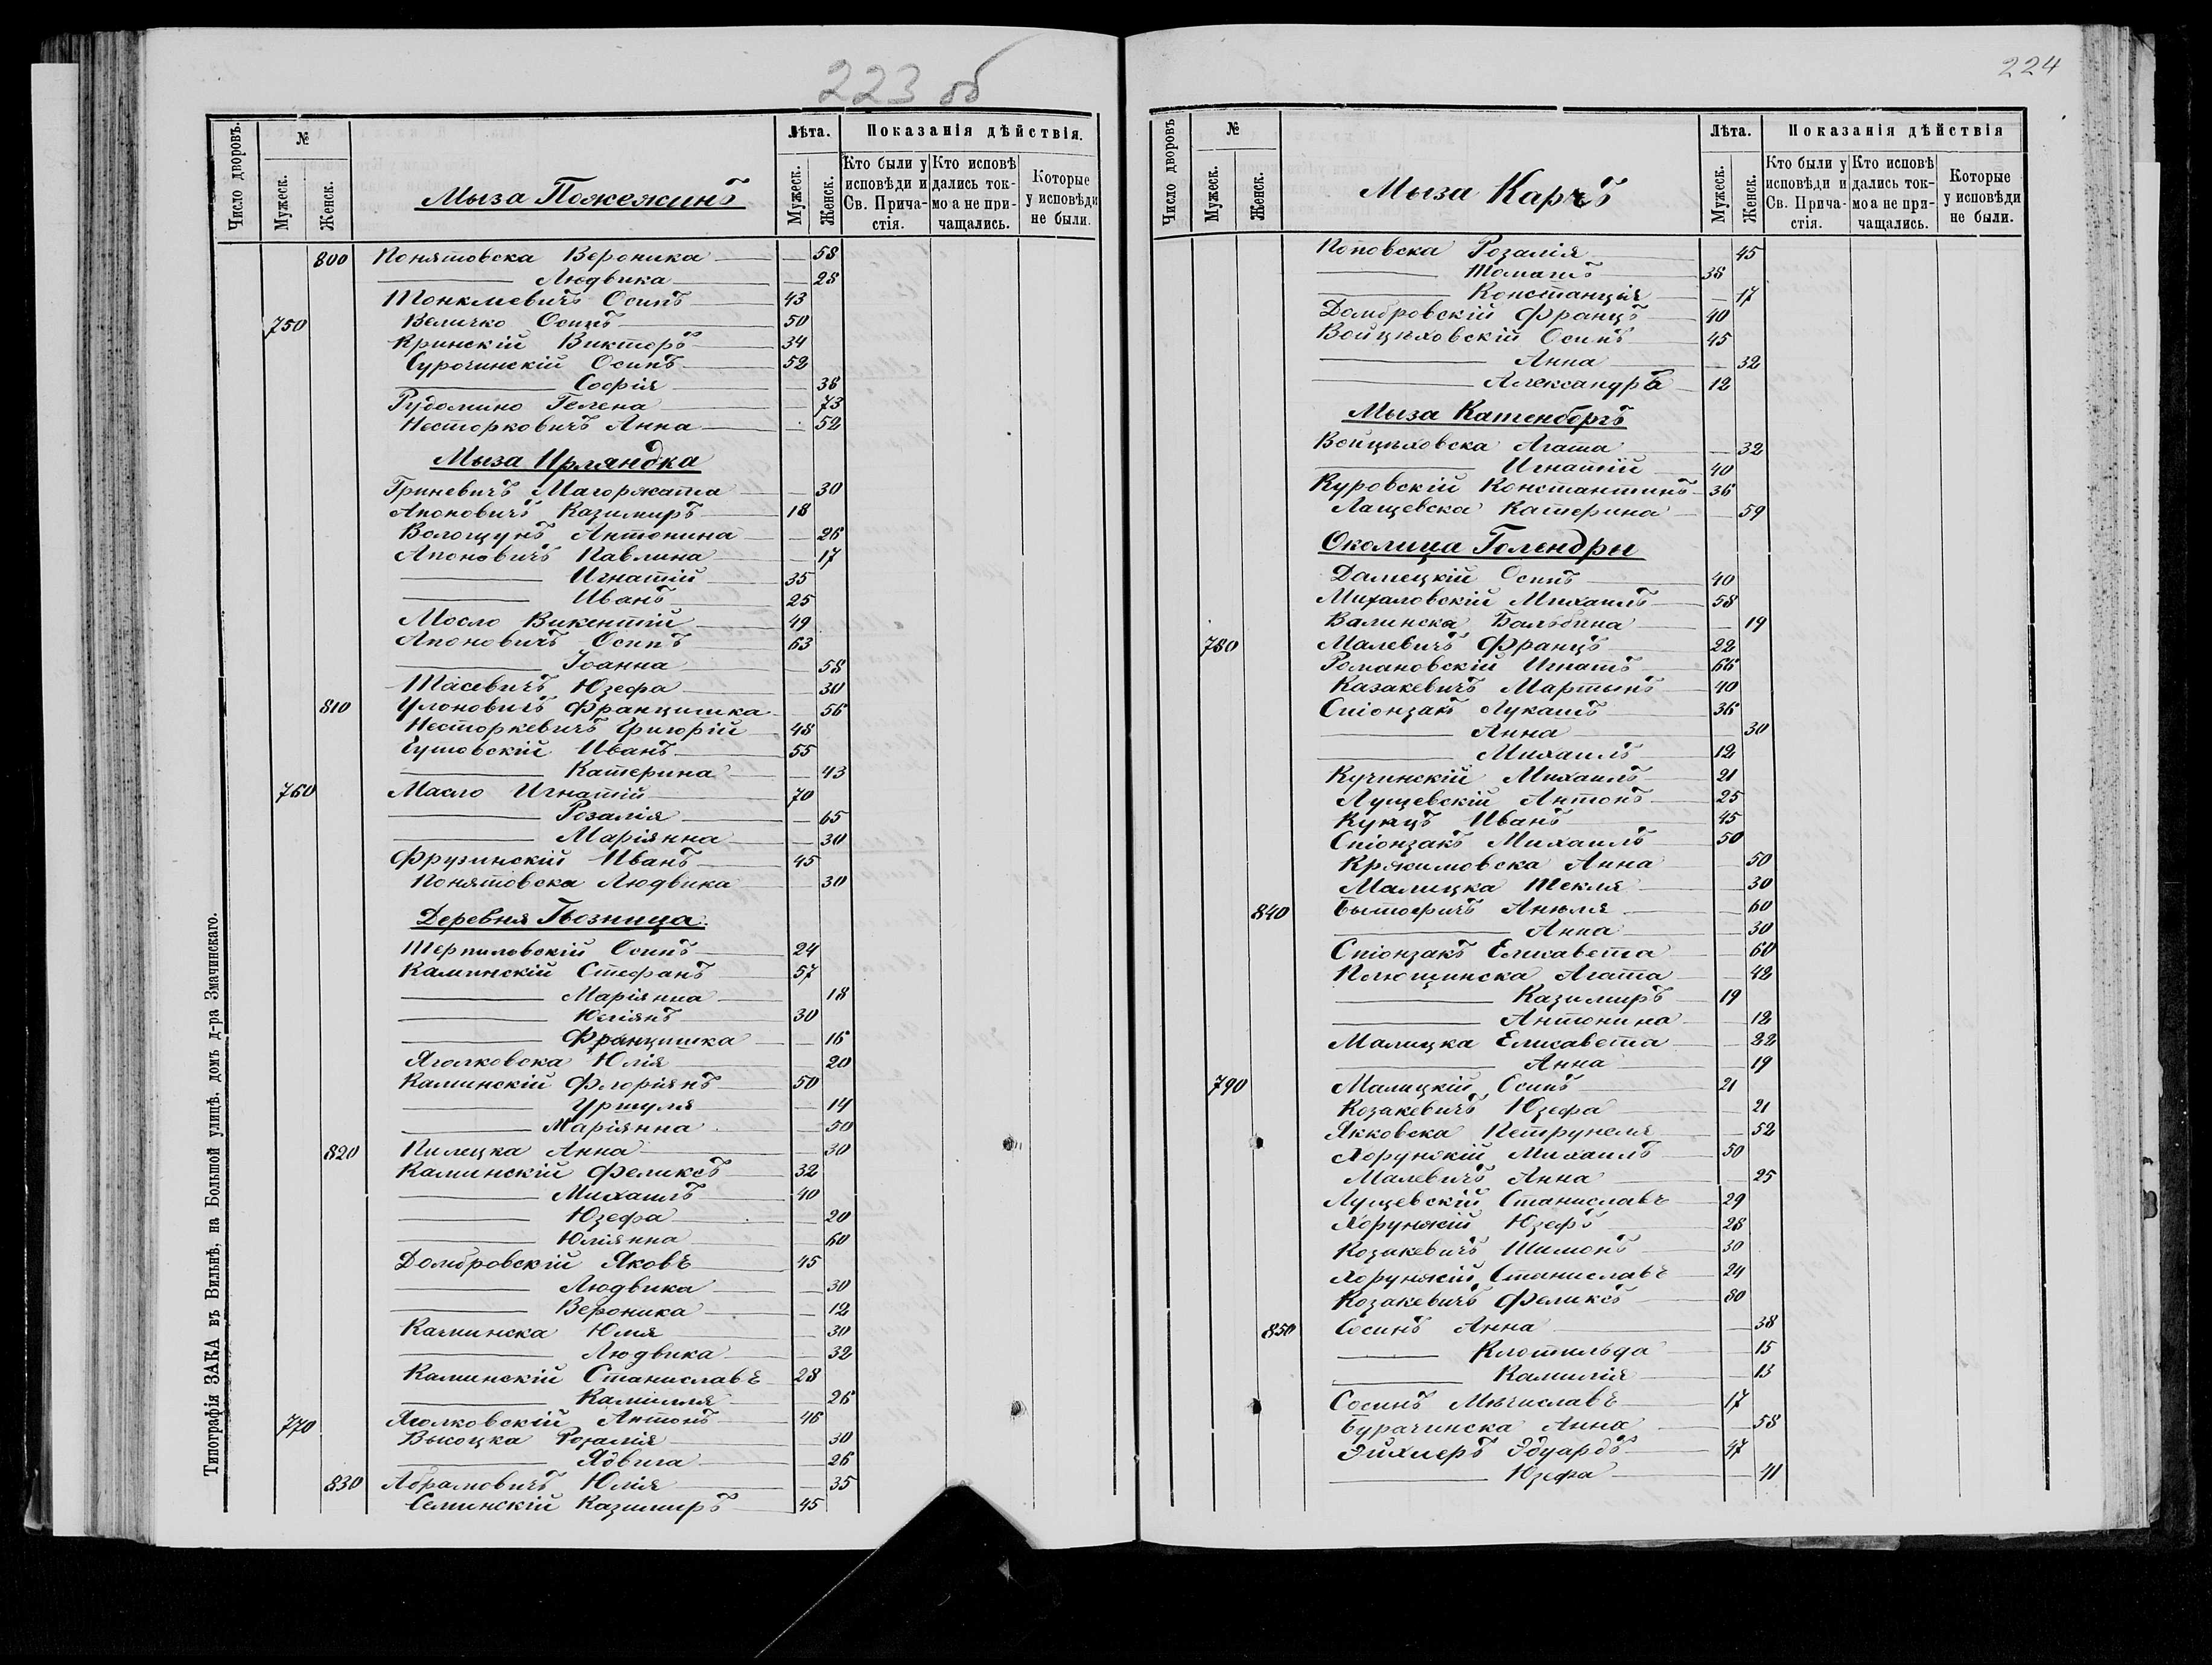 223 об
Число дворовъ. № Лѣта. Показанія дѣйствія.
Мужеск. Женск. Мыза Пожежинъ Мужеск. Женск. Кто были у исповѣди и Св. Причастія. Кто исповѣдались токмо а не причащались. Которые у исповѣди не были.
800 Понятовска Вероника 58
Людвика 28
Тонклевичъ Осипъ 43
750 Величко Осипъ 50
Кринскій Викторъ 34
Сурочинскій Осипъ 52
Софія 38
Рудомино Гелена 73
Несторковичъ Анна 52
Мыза Ирляндка
Гриневичъ Магоржата 30
Апоновичъ Казимиръ 18
Волощунъ Антонина 26
Апоновичъ Павлина 17
Игнатій 35
Иванъ 25
Мосло Викентій 49
Апоновичъ Осипъ 63
Іоанна 58
Тасевичъ Юзефа 30
810 Улоновичъ Францишка 56
Несторкевичъ Григорій 48
Сушовскій Иванъ 55
Катерина 43
760 Масло Игнатій 70
Розалія 65
Маріянна 30
Фрузинскій Иванъ 45
Понятовска Людвика 30
Деревня Гвозница
Терпиловскій Осипъ 24
Каминскій Стефанъ 57
Маріянна 18
Юліянъ 30
Францишка 16
Яголковска Юлія 20
Каминскій Флоріянъ 50
Уршуля 14
Маріянна 50
820 Пилецка Анна 30
Каминскій Феликсъ 32
Михаилъ 40
Юзефа 20
Юліянна 60
Домбровскій Яковъ 45
Людвика 30
Вероника 12
Каминска Юлія 30
Людвика 32
Каминскій Станиславъ 28
Камилля 26
770 Яголковскій Антонъ 46
Высоцка Розалія 30
Ядвига 26
830 Абрамовичъ Юлія 35
Семинскій Казимиръ 45
Типографія ЗАКА въ Вильнѣ, на Большой улицѣ, домъ д-ра Змачинскаго.
224
Число дворовъ № Лѣта. Показанія дѣйствія
Мужеск. Женск. Мыза Карчъ Мужеск. Женск. Кто были у исповѣди и Св. Причастія. Кто исповѣдались токмо а не причащались. Которые у исповѣди не были.
Поповска Розалія 45
Томашъ 38
Констанція 17
Домбровскій Францъ 40
Войцѣховскій Осипъ 45
Анна 32
Александръ 12
Мыза Катенборгъ
Войцѣховска Агата 32
Игнатій 40
Куровскій Константинъ 36
Лащевска Катерина 59
Околица Голендры
Далецкій Осипъ 40
Михаловскій Михаилъ 58
Валинска Бальбина 19
780 Малевичъ Францъ 22
Романовскій Игнатъ 66
Казакевичъ Мартынъ 40
Спіонзакъ Лукашъ 36
Анна 30
Михаилъ 12
Кучинскій Михаилъ 21
Лущевскій Антонъ 25
Кунцъ Иванъ 45
Спіонзакъ Михаилъ 50
Кржимовска Анна 50
Малицка Текля 30
840 Бытофичъ Анеля 60
Анна 30
Спіонзакъ Елисавета 60
Плющинска Агата 42
Казимиръ 19
Антонина 12
Малицка Елисавета 22
Анна 19
790 Малицкій Осипъ 21
Козакевичъ Юзефа 21
Якковска Петрунеля 52
Хорунжій Михаилъ 50
Малевичъ Анна 25
Лущевскій Станиславъ 29
Хорунжій Юзефъ 28
Козакевичъ Шимонъ 30
Хорунжій Станиславъ 24
Козакевичъ Феликсъ 80
850 Сосинъ Анна 38
Клотильда 15
Камилія 13
Сосинъ Мѣчиславъ 17
Бурачинска Анна 58
Эйхлеръ Эдуардъ 47
Юзефа 41